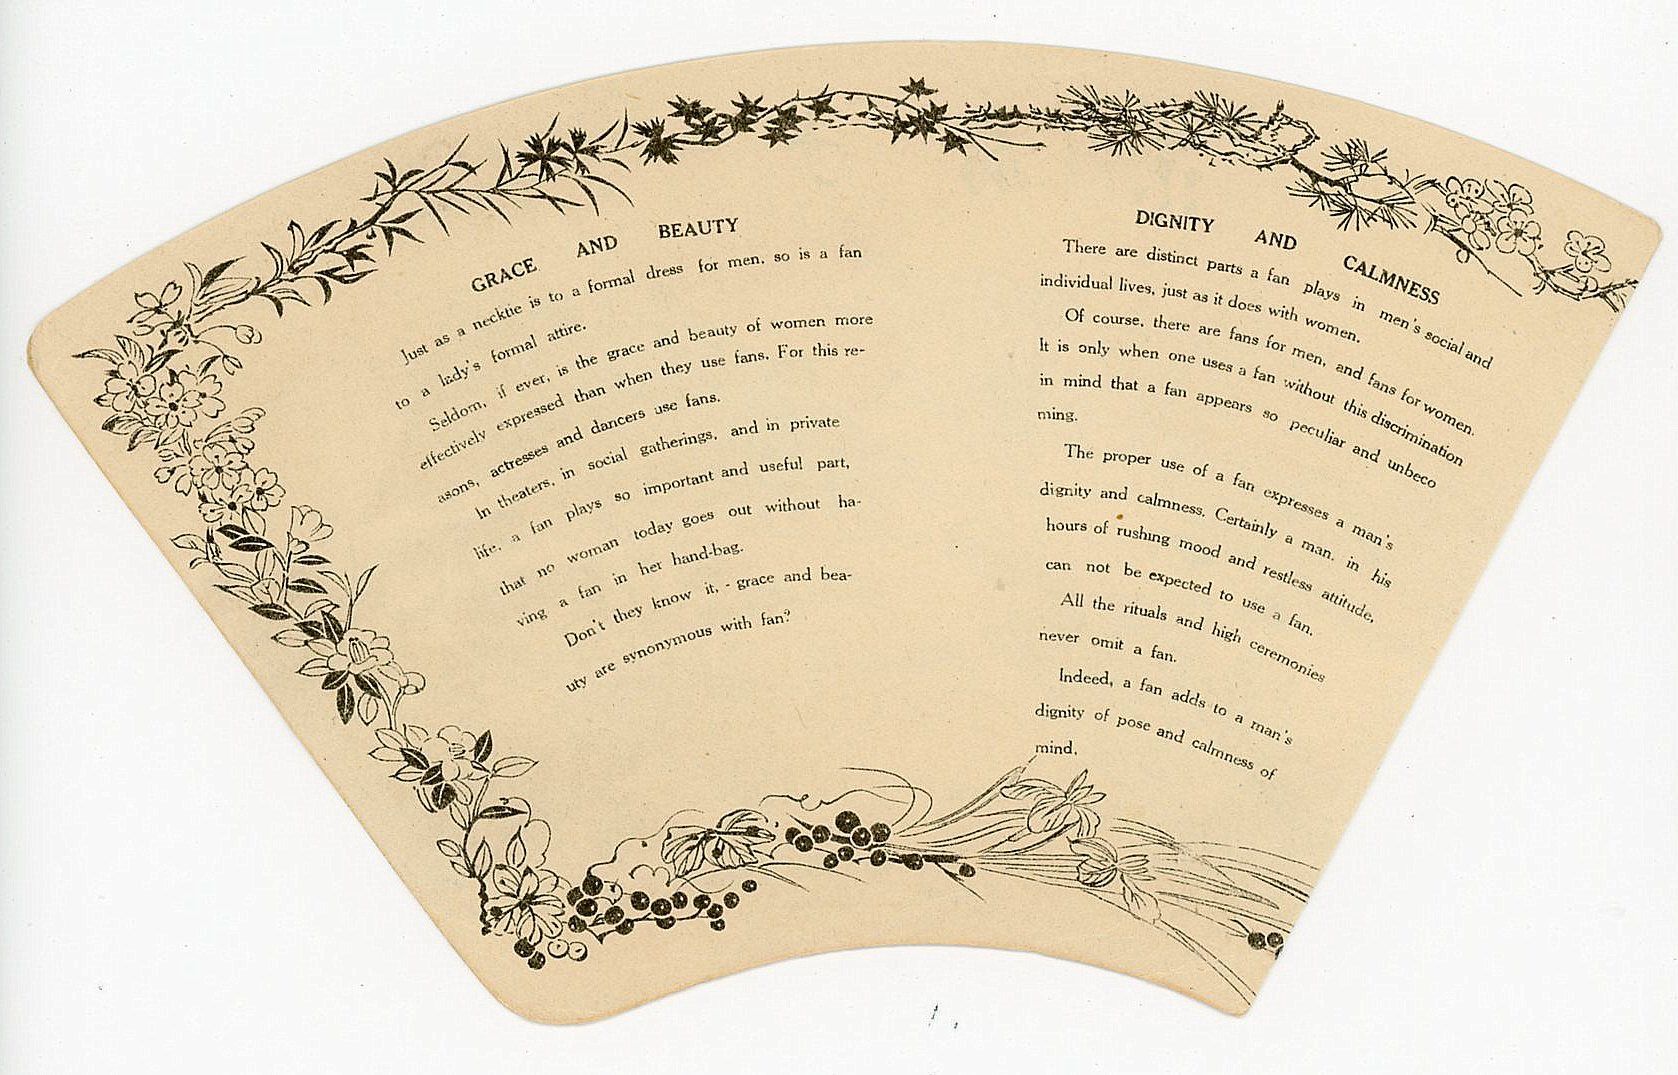 GRACE AND BEAUTY
Just as a necktie is to a formal dress for men, so is a fan
to a lady's formal attire.
Seldom, if ever, is the grace and beauty of women more
effectively expressed than when they use fans. For this re-
asons, actresses and dancers use fans.
In theaters, in social gatherings, and in private
life, a fan plays so important and useful part,
that no woman today goes out without ha-
ving a fan in her hand-bag.
Don't they know it, - grace and bea-
uty are synonymous with fan?
DIGNITY AND CALMNESS
There are distinct parts a fan plays in men's social and
individual lives, just as it does with women.
Of course, there are fans for men, and fans for women.
It is only when one uses a fan without this discrimination
in mind that a fan appears so peculiar and unbeco
ming.
The proper use of a fan expresses a man's
dignity and calmness. Certainly a man, in his
hours of rushing mood and restless attitude,
can not be expected to use a fan.
All the rituals and high ceremonies
never omit a fan.
Indeed, a fan adds to a man's
dignity of pose and calmness of
mind.